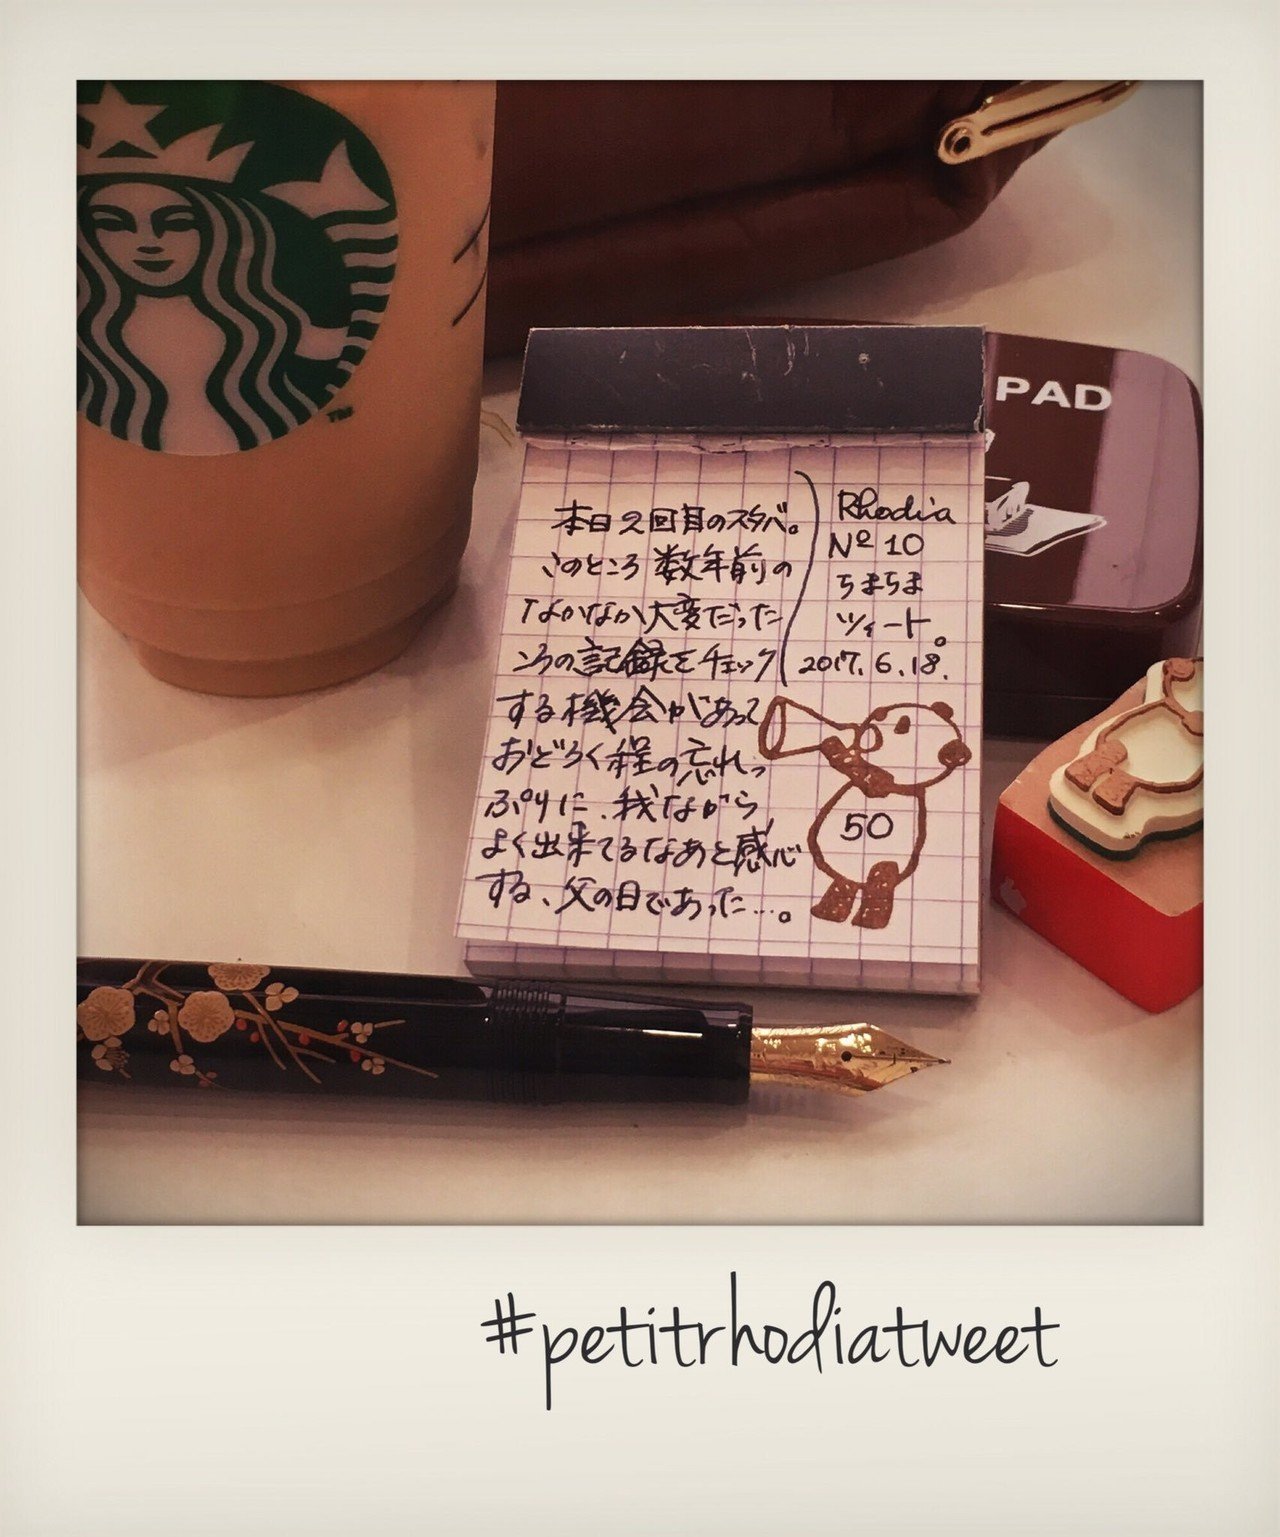 PAD
本日2回目のスタバ。
このところ数年前の
なかなか大変だった
ころの記録をチェック
する機会があって
おどろく程の忘れっ
ぷりに、我ながら
よく出来てるなあと感心
する、父の日であった…。
Rhodia
Nº 10
ちまちま
ツイート。
2017.6.18.
50
TM
#petitrhodiatweet